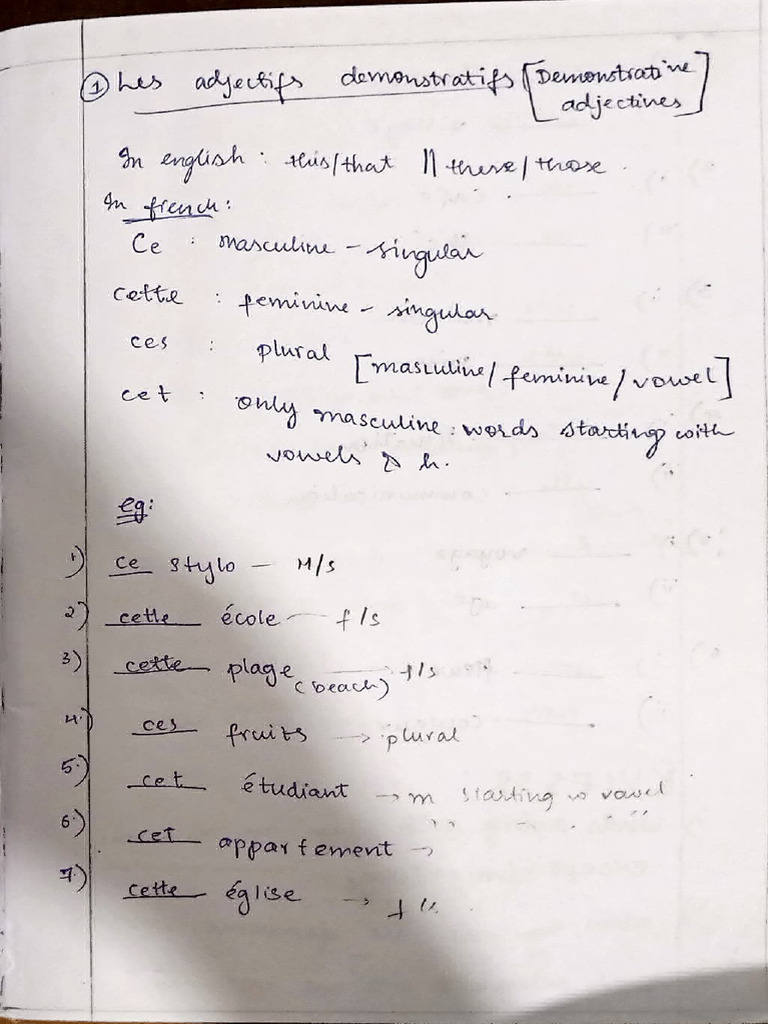 ① Les adjectifs demonstratifs [Demonstrative adjectives]
In english : this/that || these/those.
In french :
Ce : masculine - singular
cette : feminine - singular
ces : plural [masculine/feminine/vowel]
cet : only masculine words starting with
vowels & h.
eg:
1) ce stylo — M/s
2) cette école — f/s
3) cette plage (beach) → f/s
4.) ces fruits → plural
5.) cet étudiant → m starting w vowel
6.) cet appartement → " "
7.) cette église → f